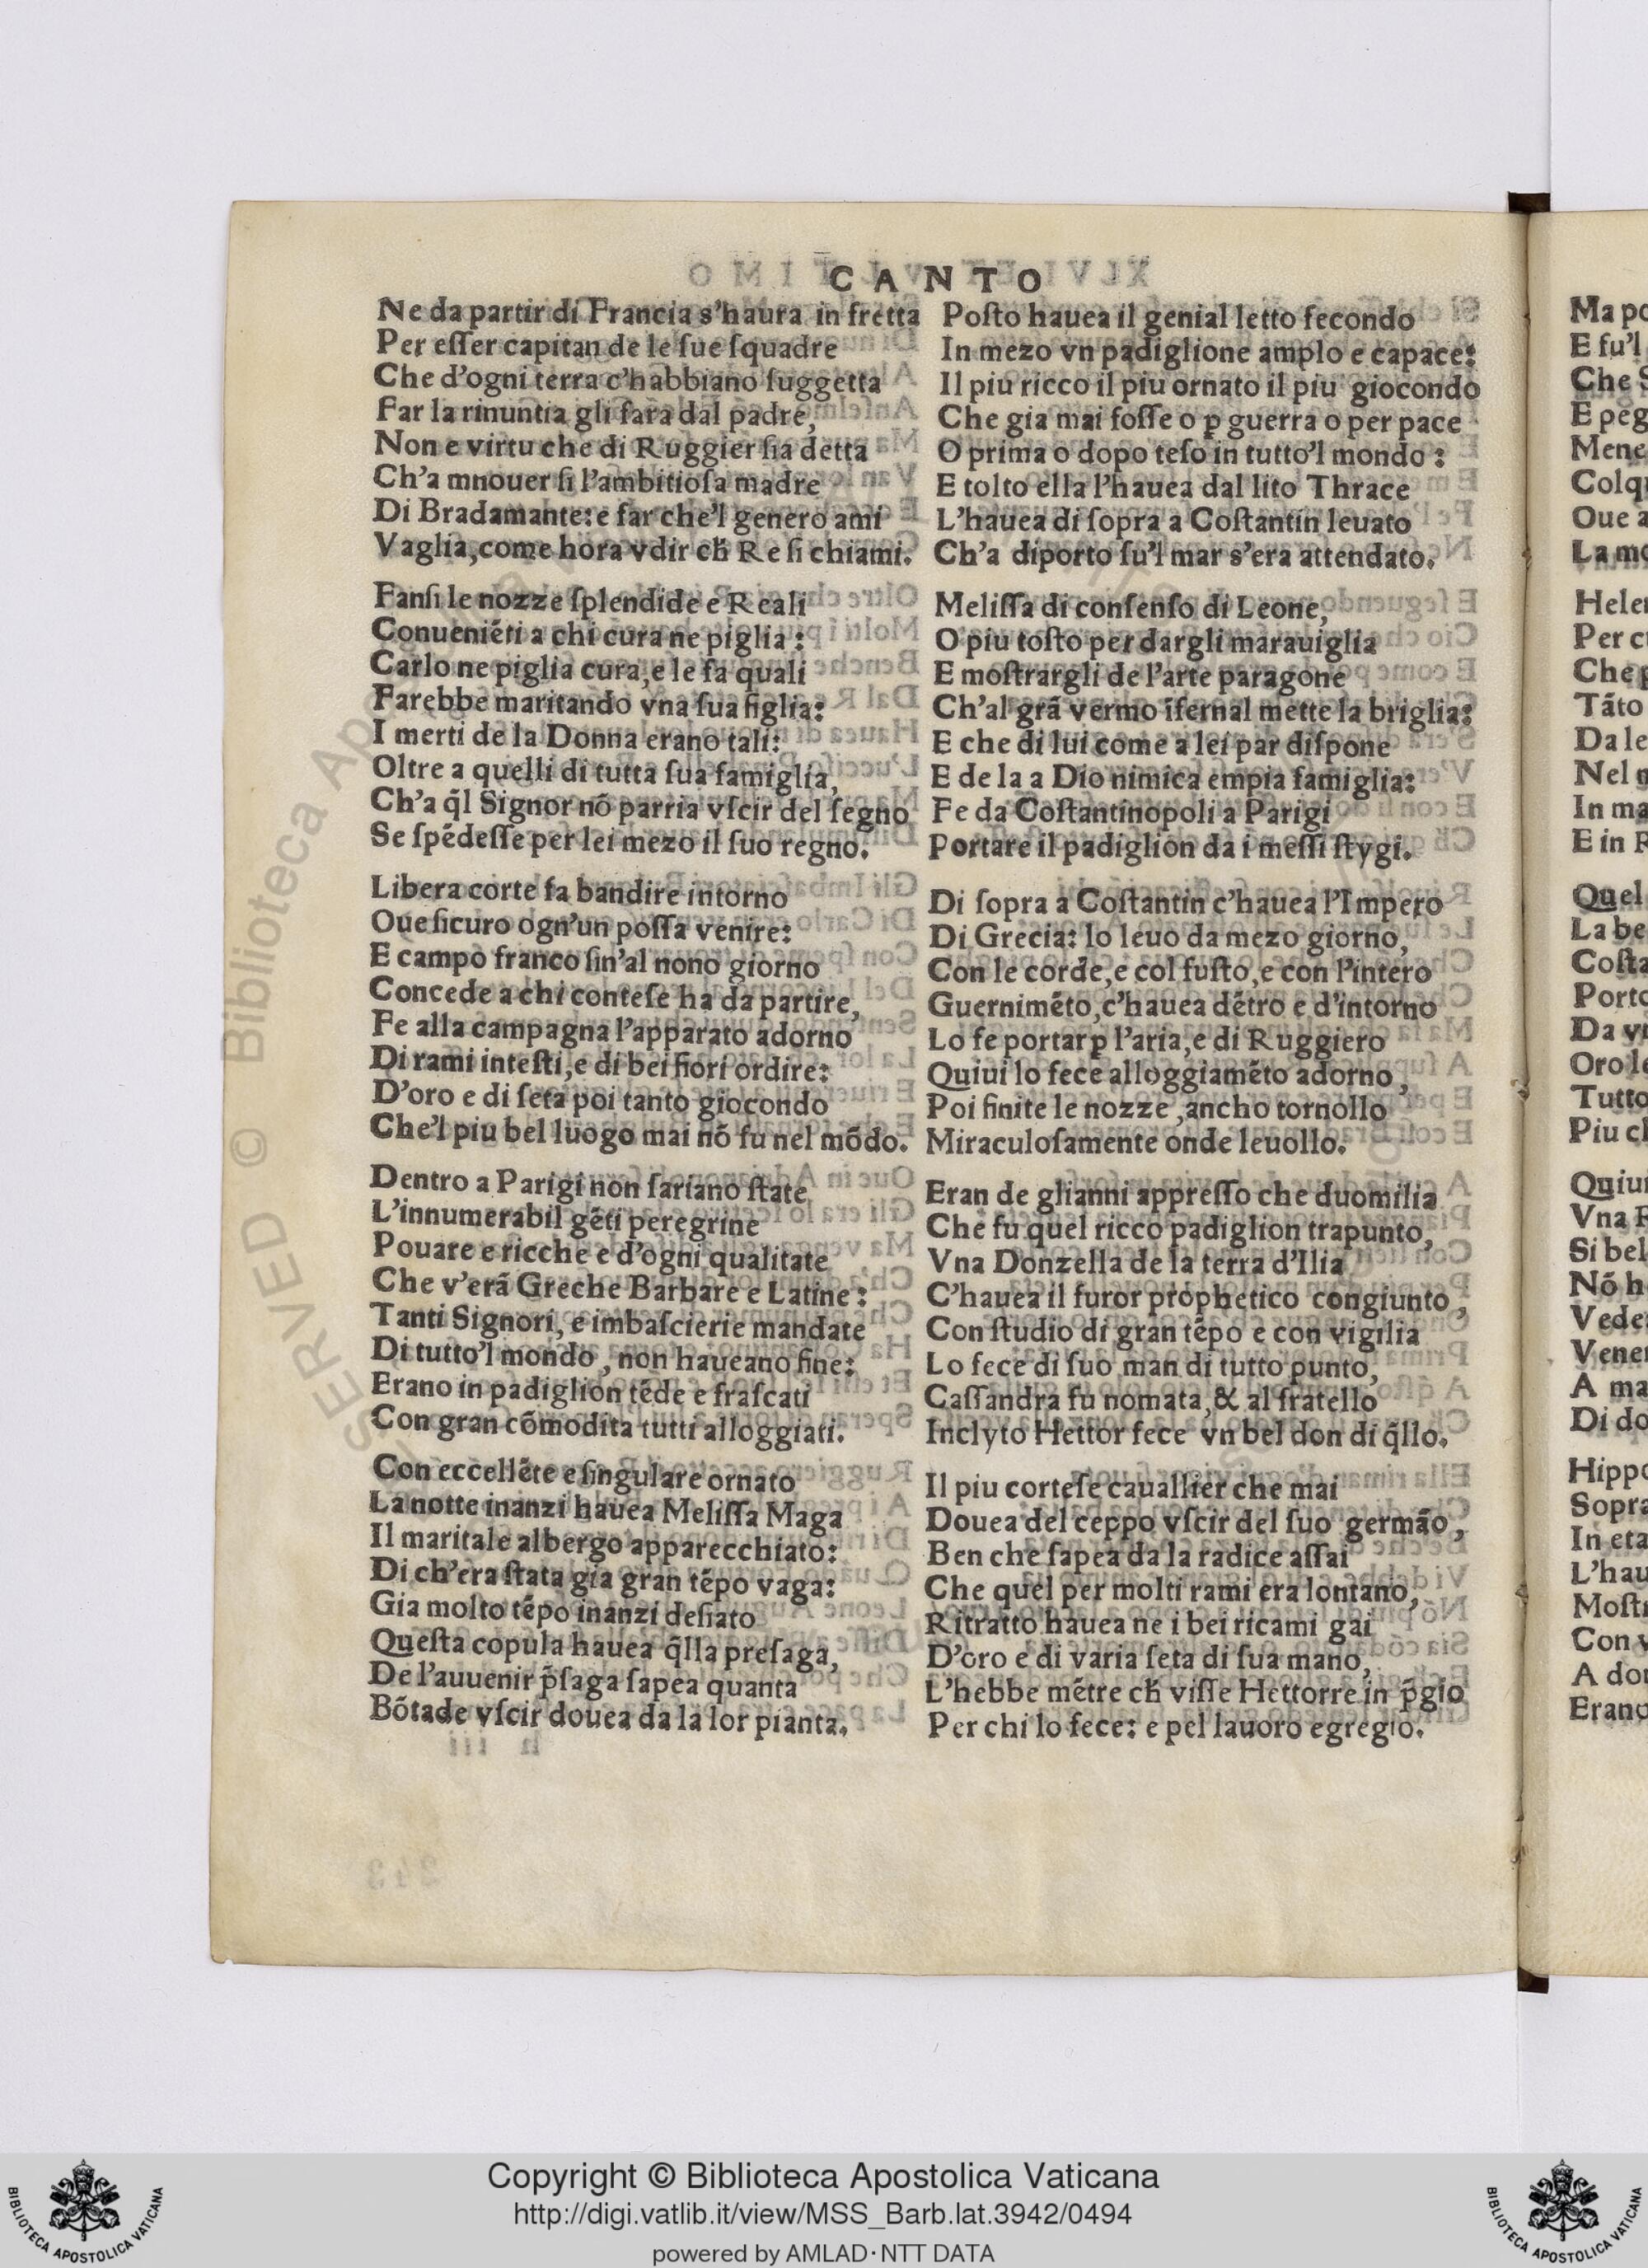 CANTO
Ne da partir di Francia s'haura in fretta
Per eſſer capitan de le ſue ſquadre
Che d'ogni terra c'habbiano ſuggetta
Far la rinuntia gli fara dal padre,
Non e virtu che di Ruggier ſia detta
Ch'a mnouer ſi l'ambitioſa madre
Di Bradamante: e far che'l genero ami
Vaglia, come hora vdir cħ Re ſi chiami.
Fanſi le nozze ſplendide e Reali
Conueniēti a chi cura ne piglia:
Carlo ne piglia cura, e le fa quali
Farebbe maritando vna ſua figlia:
I merti de la Donna erano tali:
Oltre a quelli di tutta ſua famiglia,
Ch'a q̃l Signor nō parria vſcir del ſegno
Se ſpēdeſſe per lei mezo il ſuo regno.
Libera corte fa bandire intorno
Oue ſicuro ogn'un poſſa venire:
E campo franco ſin'al nono giorno
Concede a chi conteſe ha da partire,
Fe alla campagna l'apparato adorno
Di rami inteſti, e di bei fiori ordire:
D'oro e di ſeta poi tanto giocondo
Che'l piu bel luogo mai nō fu nel mōdo.
Dentro a Parigi non ſariano ſtate
L'innumerabil gēti peregrine
Pouare e ricche e d'ogni qualitate
Che v'erā Greche Barbare e Latine:
Tanti Signori, e imbaſcierie mandate
Di tutto'l mondo, non haueano fine:
Erano in padiglion tēde e fraſcati
Con gran cōmodita tutti alloggiati.
Con eccellēte e ſingulare ornato
La notte inanzi hauea Meliſſa Maga
Il maritale albergo apparecchiato:
Di ch'era ſtata gia gran tēpo vaga:
Gia molto tēpo inanzi deſiato
Queſta copula hauea q̃lla preſaga,
De l'auuenir p̃ſaga ſapea quanta
Bōtade vſcir douea da la lor pianta.
Poſto hauea il genial letto fecondo
In mezo vn padiglione amplo e capace:
Il piu ricco il piu ornato il piu giocondo
Che gia mai foſſe o ꝑ guerra o per pace
O prima o dopo teſo in tutto'l mondo:
E tolto ella l'hauea dal lito Thrace
L'hauea di ſopra a Coſtantin leuato
Ch'a diporto ſu'l mar s'era attendato.
Meliſſa di conſenſo di Leone,
O piu toſto per dargli marauiglia
E moſtrargli de l'arte paragone
Ch'al grā vermo īfernal mette la briglia:
E che di lui come a lei par diſpone
E de la a Dio nimica empia famiglia:
Fe da Coſtantinopoli a Parigi
Portare il padiglion da i meſſi ſtygi.
Di ſopra a Coſtantin c'hauea l'Impero
Di Grecia: lo leuo da mezo giorno,
Con le corde, e col fuſto, e con l'intero
Guernimēto, c'hauea dētro e d'intorno
Lo fe portar ꝑ l'aria, e di Ruggiero
Quiui lo fece alloggiamēto adorno,
Poi finite le nozze, ancho tornollo
Miraculoſamente onde leuollo.
Eran de glianni appreſſo che duomilia
Che fu quel ricco padiglion trapunto,
Vna Donzella de la terra d'Ilia
C'hauea il furor prophetico congiunto,
Con ſtudio di gran tēpo e con vigilia
Lo fece di ſuo man di tutto punto,
Caſſandra fu nomata, & al fratello
Inclyto Hettor fece vn bel don di q̃llo.
Il piu corteſe cauallier che mai
Douea del ceppo vſcir del ſuo germāo,
Ben che ſapea da la radice aſſai
Che quel per molti rami era lontano,
Ritratto hauea ne i bei ricami gai
D'oro e di varia ſeta di ſua mano,
L'hebbe mētre cħ viſſe Hettorre in p̃gio
Per chi lo fece: e pel lauoro egregio.
Ma po
E ſu'l
Che S
E peg
Mene
Colqu
Oue a
La mo
Helen
Per c
Che p
Tāto
Da le
Nel m
In ma
E in R
Quel
La be
Coſta
Porto
Da vi
Oro le
Tutto
Piu ch
Quiui
Vna R
Si bel
Nō h
Vede
Vener
A ma
Di do
Hippo
Sopra
In eta
L'hau
Moſtr
Con v
A don
Erano
SERVED © Biblioteca Apo
Copyright © Biblioteca Apostolica Vaticana
http://digi.vatlib.it/view/MSS_Barb.lat.3942/0494
powered by AMLAD·NTT DATA
BIBLIOTECA APOSTOLICA VATICANA
BIBLIOTECA APOSTOLICA VATICANA